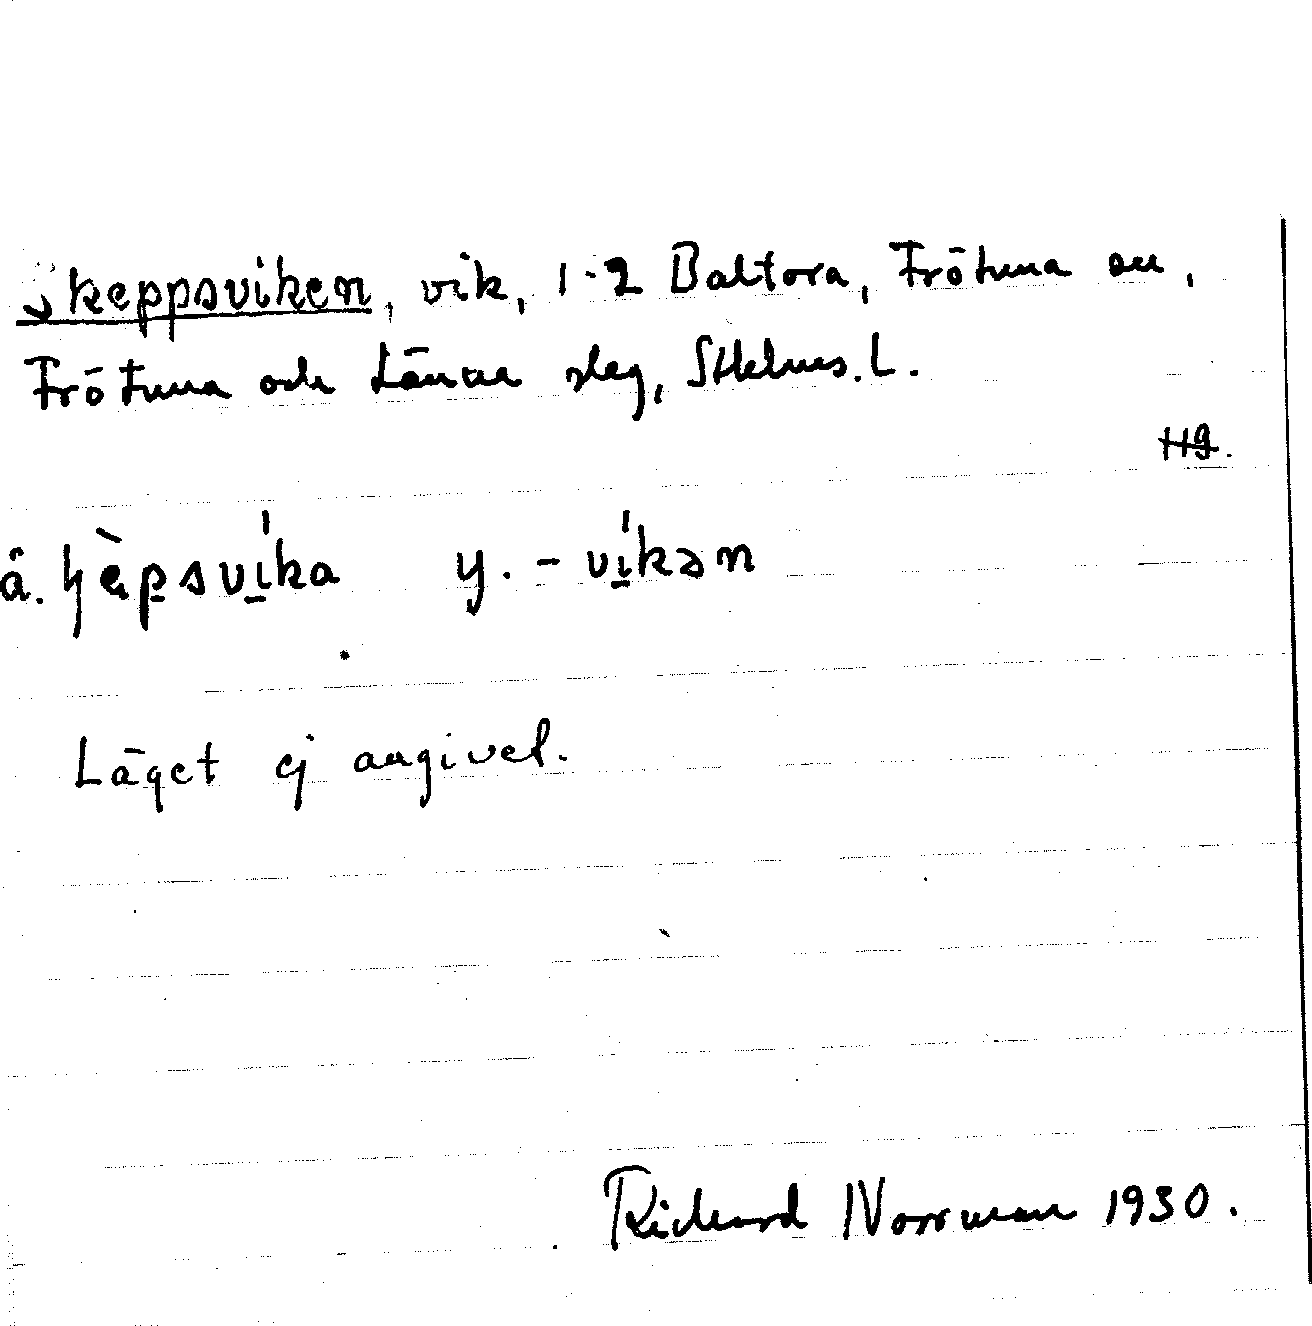 Skeppsviken, vik, 1-2 Baltora, Frötuna sn,
Frötuna och Länna slag, Sthlms. L.
Hg.
ä. ɧèp̱svi̱ka y. - vi̱kən
Läget ej angivet.
Richard Norrman 1930.